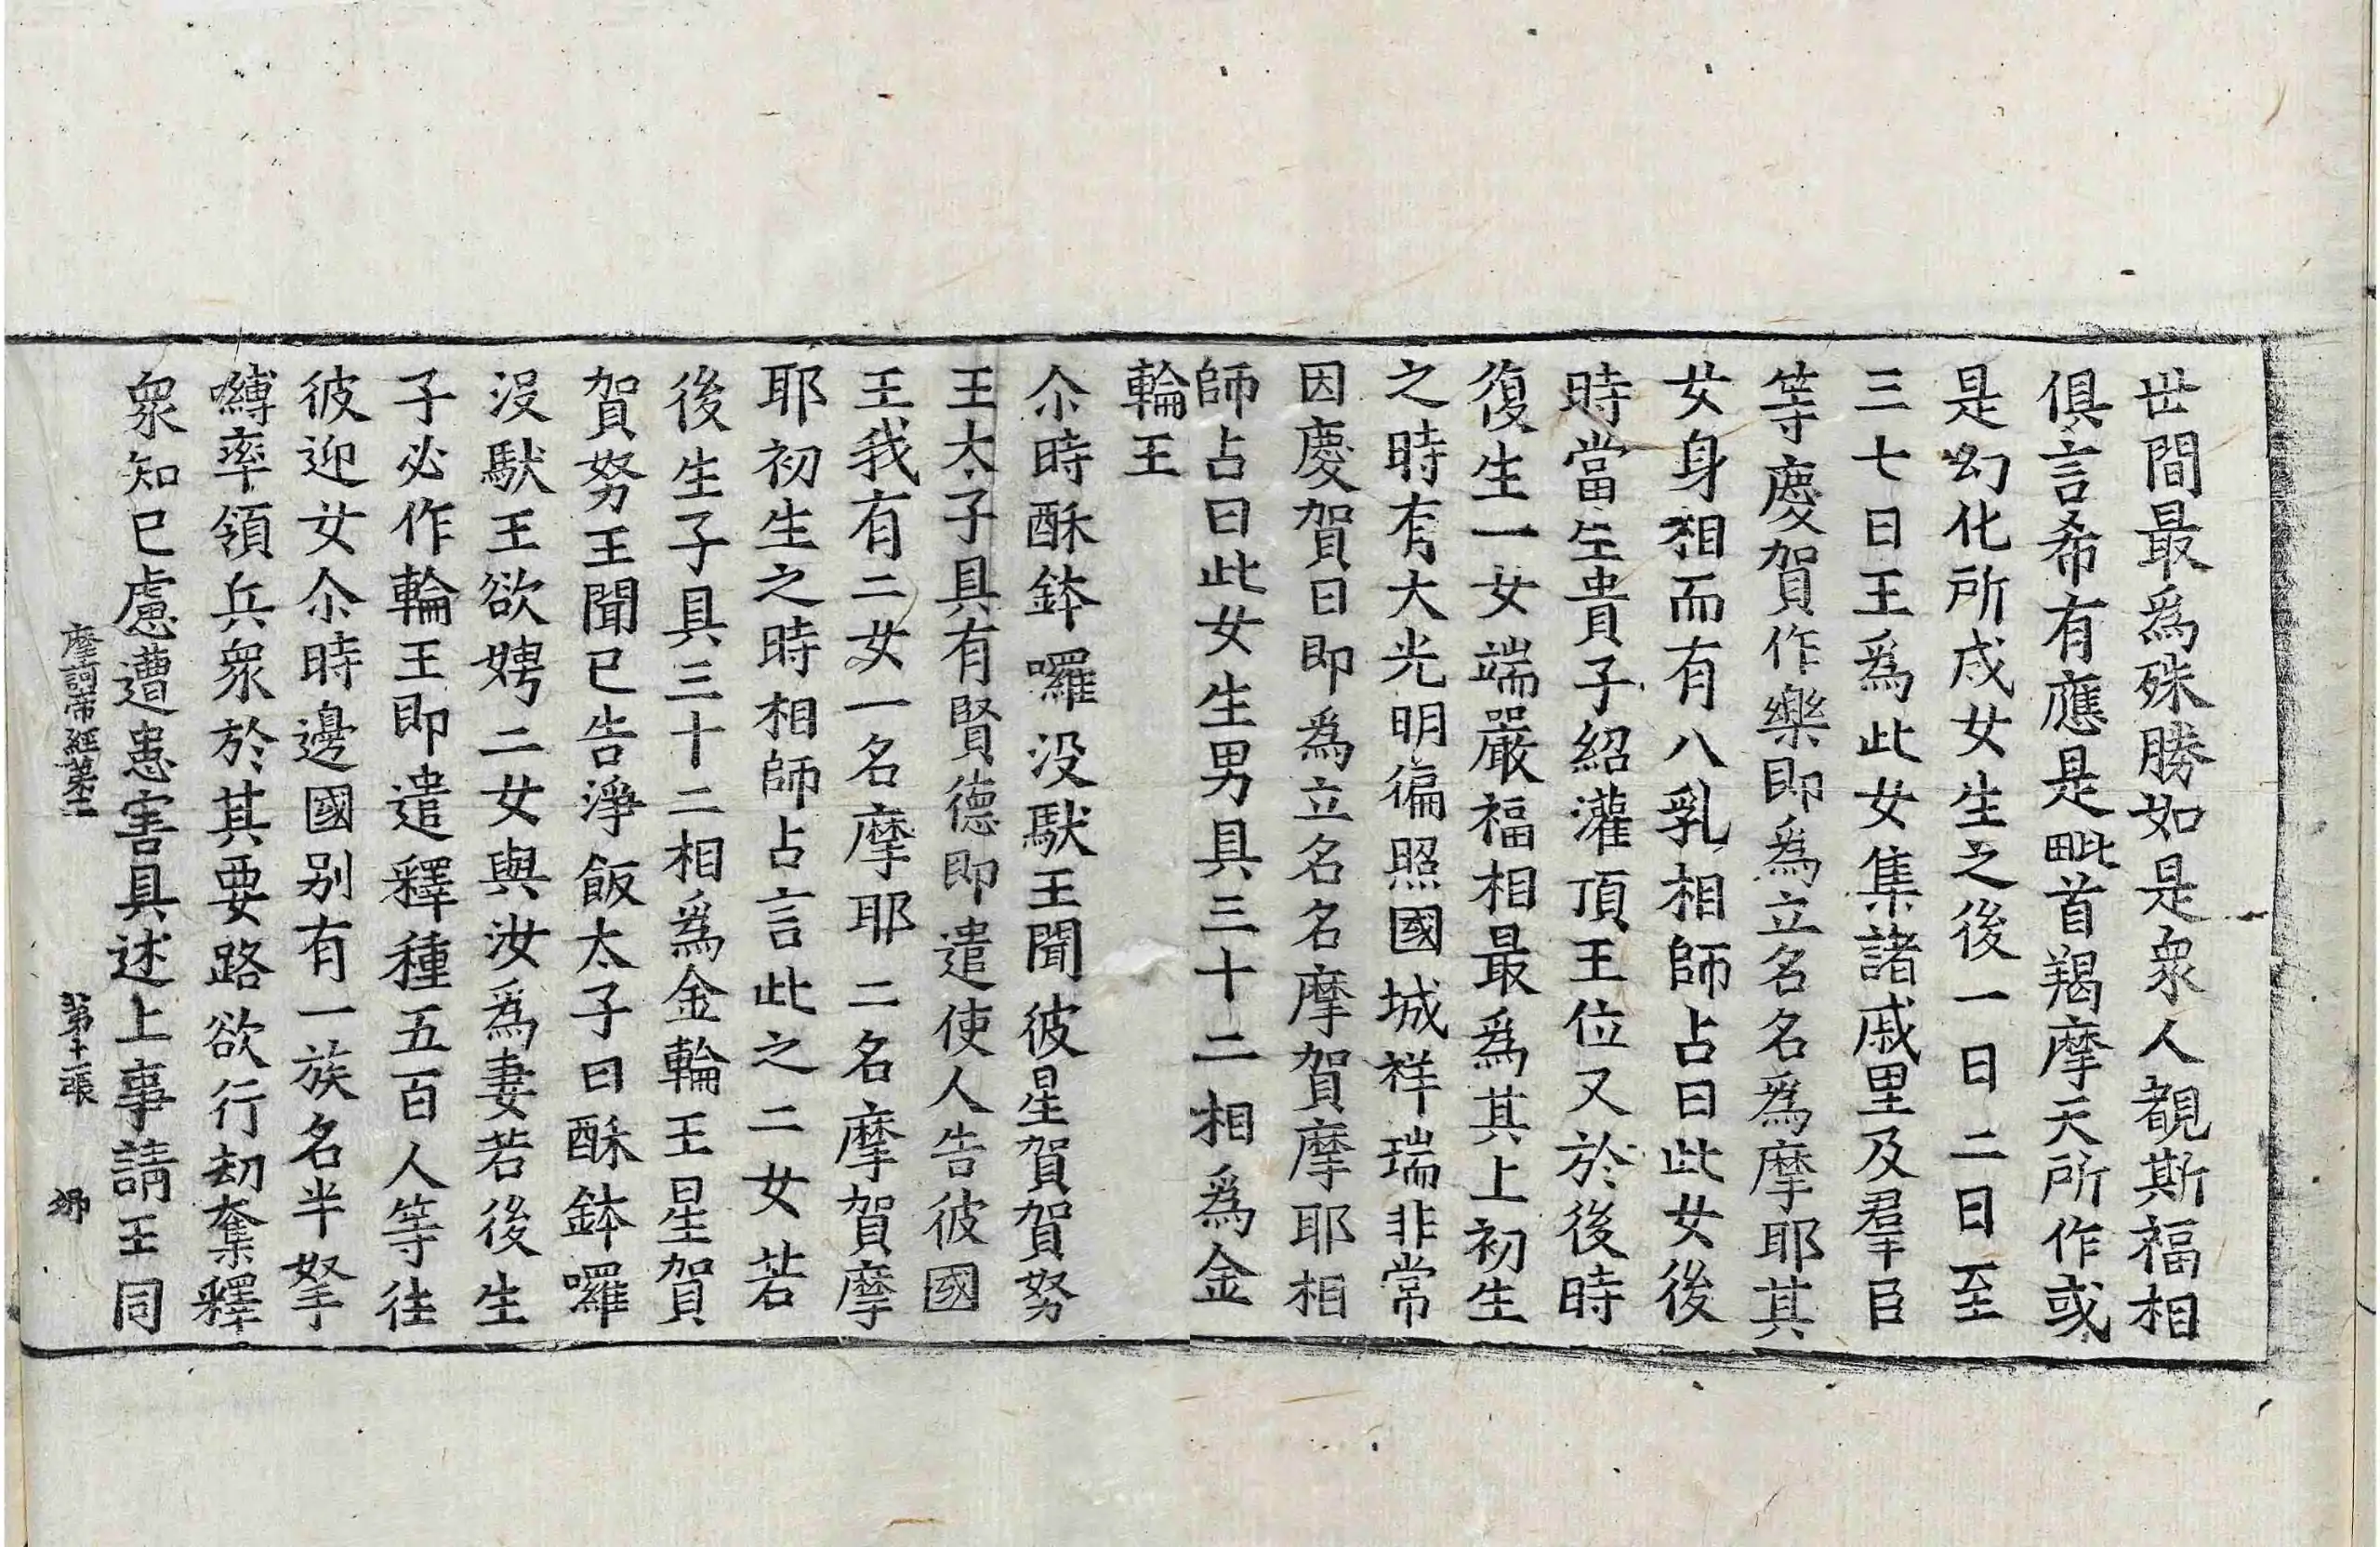 世間最爲殊勝如是衆人覩斯福相
俱言希有應是毗首羯摩天所作或
是幻化所成女生之後一日二日至
三七日王爲此女集諸戚里及羣臣
等慶賀作樂即爲立名名爲摩耶其
女身相而有八乳相師占曰此女後
時當生貴子紹灌頂王位又於後時
復生一女端嚴福相最爲其上初生
之時有大光明徧照國城祥瑞非常
因慶賀日即爲立名名摩賀摩耶相
師占曰此女生男具三十二相爲金
輪王
尒時酥鉢囉没馱王聞彼星賀賀努
王太子具有賢德即遣使人告彼國
王我有二女一名摩耶二名摩賀摩
耶初生之時相師占言此之二女若
後生子具三十二相爲金輪王星賀
賀努王聞已告淨飯太子曰酥鉢囉
没馱王欲娉二女與汝爲妻若後生
子必作輪王即遣釋種五百人等往
彼迎女尒時邊國別有一族名半拏
嚩率領兵衆於其要路欲行劫奪釋
衆知已慮遭患害具述上事請王同
摩訶帝經第二　第十二張